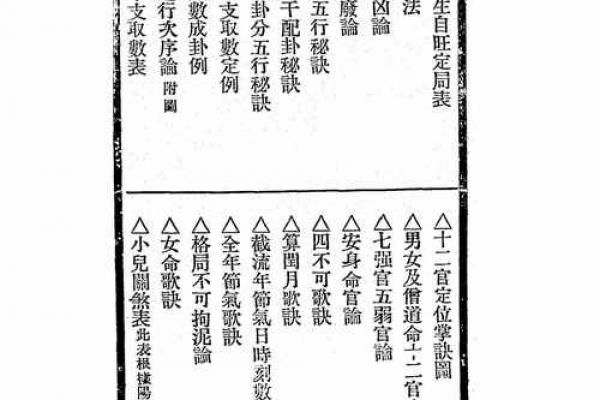 生自旺定局表
法
凶論
廢論
五行秘訣
干配卦秘訣
卦分五行秘訣
支取數定例
數成卦例
行次序論附圖
支取數表
△十二官定位掌訣圖
△男女及僧道命十二官
△七强官五弱官論
△安身命官論
△四不可歌訣
△算閏月歌訣
△截流年節氣日時刻數
△全年節氣歌訣
△格局不可拘泥論
△女命歌訣
△小兒關煞表此表根據陽